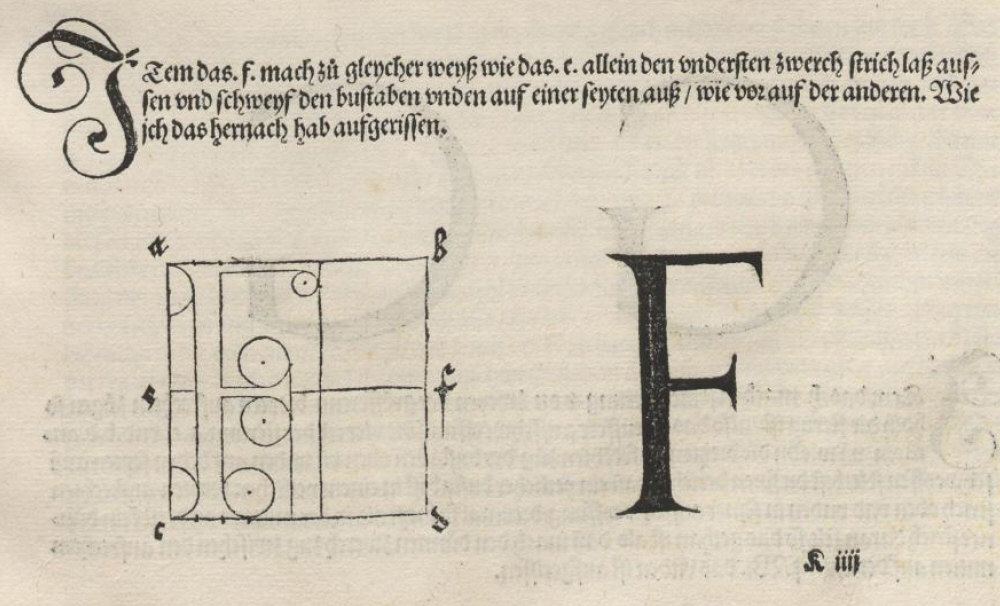 ITem das. f. mach zů gleycher weyß wie das. e. allein den vndersten zwerch strich laß auſ⸗
ſen vnd ſchweyf den buſtaben vnden auf einer ſeyten auß / wie vor auf der anderen. Wie
ich das hernach hab aufgeriſſen.
a b
F
e f
c d
K iiij